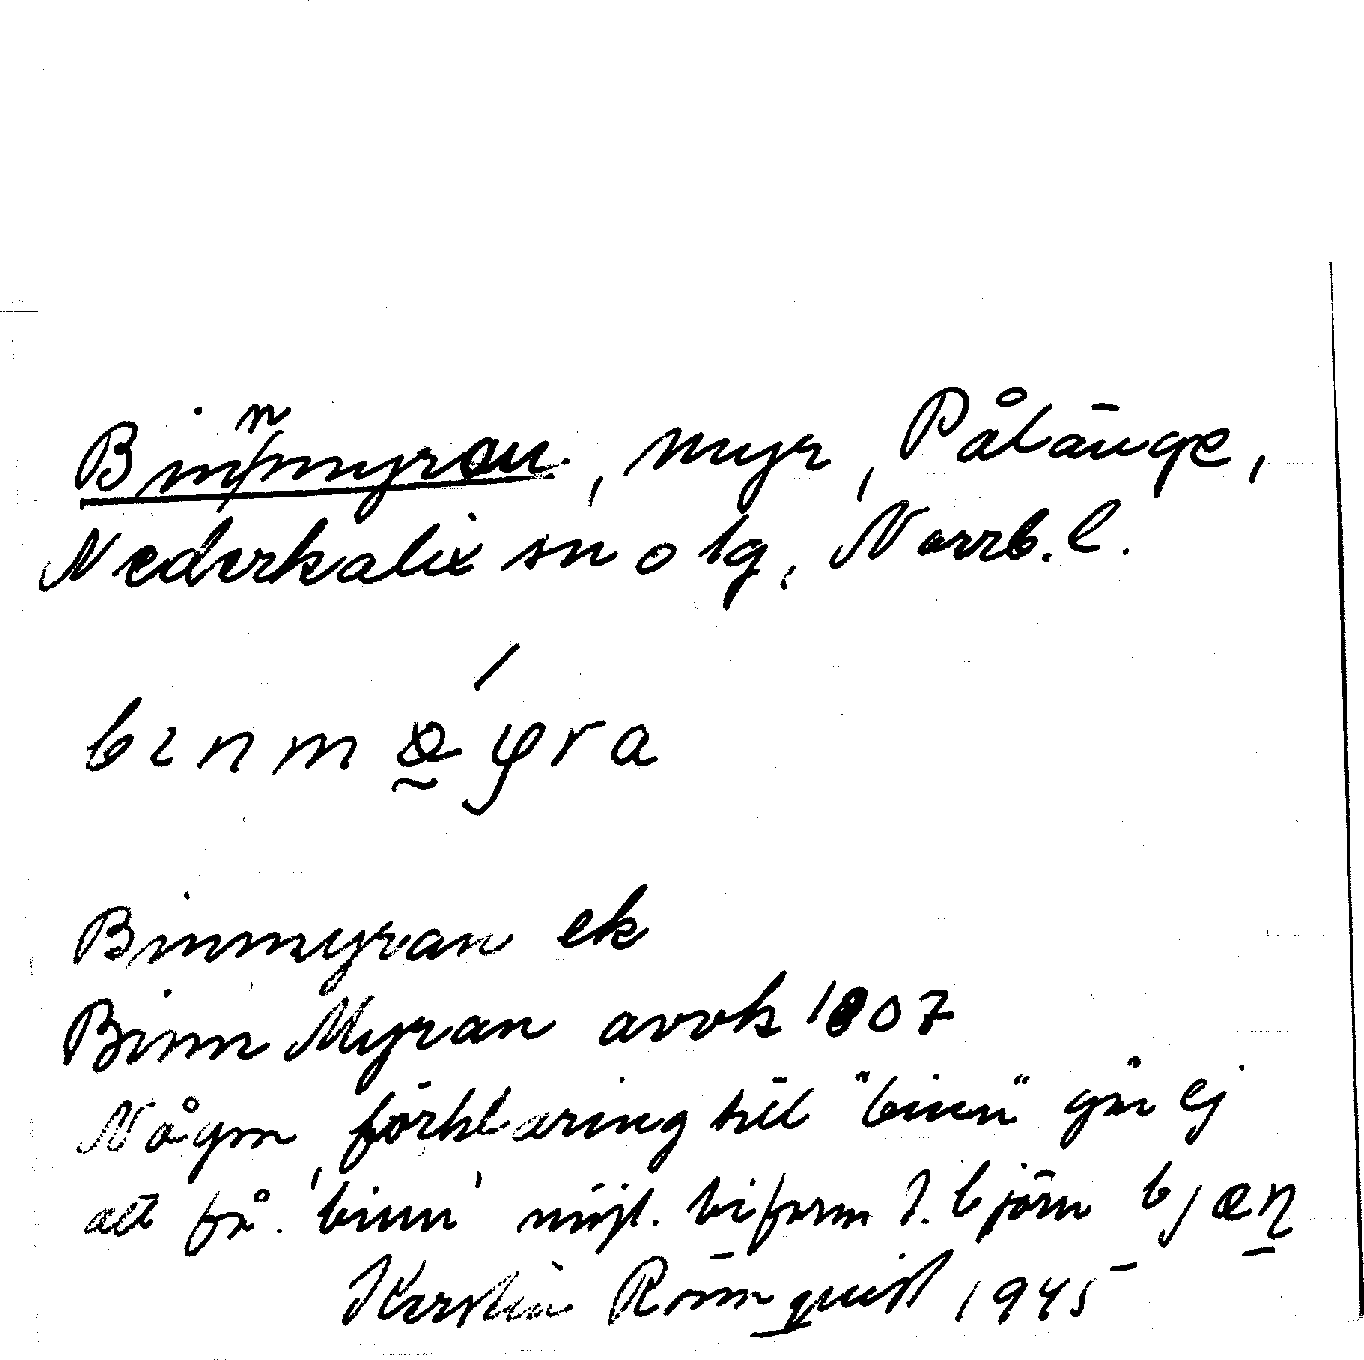 Binnmyran, myr, Pålänge,
Nederkalix sn o tg, Norrb. l.
bınmǿyra
Binmyran ek
Binn Myran avvk 1807
Någon förklaring till "binn" går ej
att få. 'binn' möjl. biform t. björn bjæn
Kerstin Rönnquist 1945